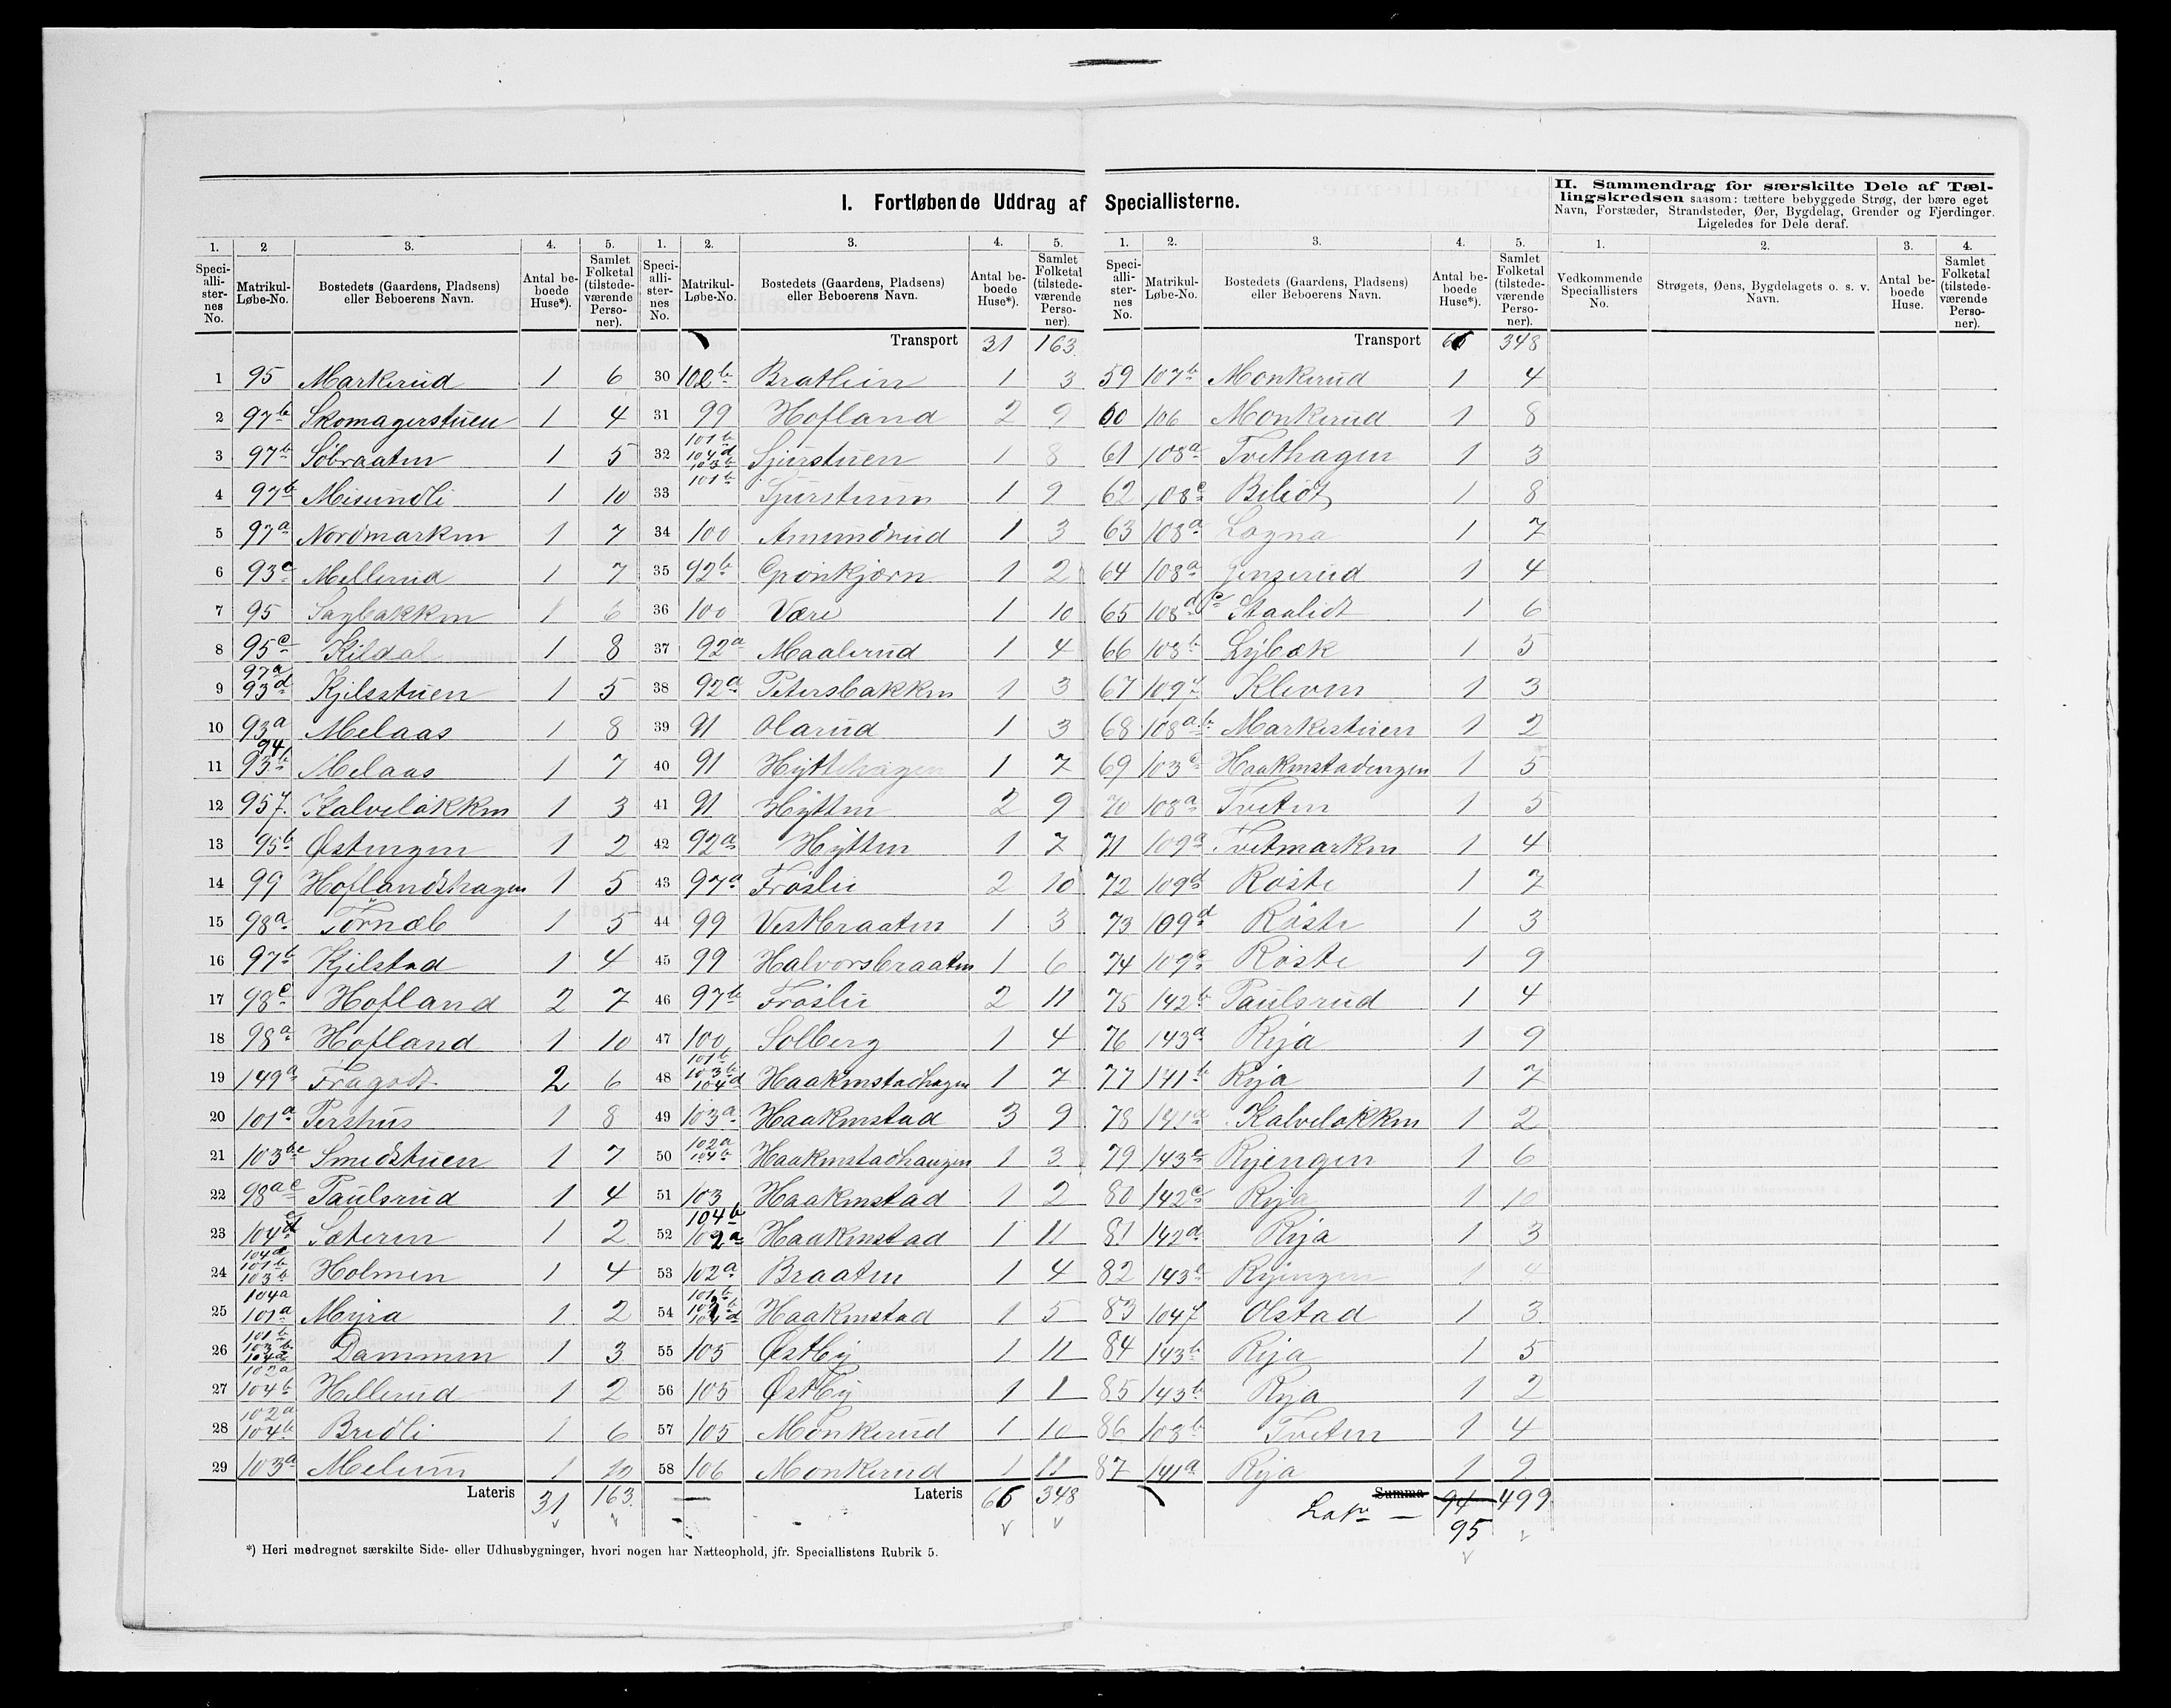 I. Fortløbende Uddrag af Speciallisterne.
II. Sammendrag for særskilte Dele af Tæl-
lingskredsen saasom: tættere bebyggede Strøg, der bære eget
Navn, Forstæder, Strandsteder, Øer, Bygdelag, Grender og Fjerdinger.
Ligeledes for Dele deraf.
1. 2 3. 4. 5.
Speciallisternes No. Matrikul-Løbe-No. Bostedets (Gaardens, Pladsens) eller Beboerens Navn. Antal beboede Huse*). Samlet Folketal (tilstedeværende Personer).
1 95 Markerud 1 6
2 97b Skomagerstuen 1 4
3 97b Søbraaten 1 5
4 97b Misundli 1 10
5 97a Nordmarken 1 7
6 93c Mellerud 1 7
7 95 Sagbakken 1 6
8 95e Kildal 1 8
9 97a 93d Kjelsstuen 1 5
10 93a Melaas 1 8
11 94 93b Melaas 1 7
12 95f Kalveløkken 1 3
13 95b Østengen 1 2
14 99 Hoflandshagen 1 5
15 98a Tørnæb 1 5
16 97b Kjelstad 1 4
17 98c Hofland 2 7
18 98a Hofland 1 10
19 149a Fragodt 2 6
20 101a Pershus 1 8
21 103bc Smedstuen 1 7
22 98ac Paulsrud 1 4
23 104d Sæteren 1 2
24 104d 101b 103b Holmen 1 4
25 104a 101a Myra 1 2
26 101b 103b 104d Dammen 1 3
27 102a 104b Hellerud 1 2
28 102a 104b Bredli 1 6
29 103a Melum 1 10
Lateris 31 163.
1. 2. 3. 4. 5.
Speciallisternes No. Matrikul-Løbe-No. Bostedets (Gaardens, Pladsens) eller Beboerens Navn. Antal beboede Huse*). Samlet Folketal (tilstedeværende Personer).
Transport 31 163.
30 102b Bratlien 1 3
31 99 Hofland 2 9
32 101b 104d 103b Sjurstuen 1 8
33 101b Sjurstuen 1 9
34 100 Amundrud 1 3
35 92b Grønkjærn 1 2
36 100 Være 1 10
37 92a Maalerud 1 4
38 92a Petersbakken 1 3
39 91 Olarud 1 3
40 91 Hyttehagen 1 7
41 91 Hytten 2 9
42 92a Hytten 1 7
43 97a Frøslie 2 10
44 99 Vestbraaten 1 3
45 99 Halvorsbraaten 1 6
46 97b Frøslie 2 11
47 100 Solberg 1 4
48 101b 103b 104d Haakenstadhagen 1 7
49 103a Haakenstad 3 9
50 102a 104b Haakenstadhaugen 1 3
51 103 Haakenstad 1 2
52 104b 102a Haakenstad 1 11
53 102a Braaten 1 4
54 101b 104d Haakenstad 1 5
55 105 Østby 1 11
56 105 Østby 1 1
57 105 Monkerud 1 10
58 106 Monkerud 1 11
Lateris 66 348
1. 2. 3. 4. 5.
Speciallisternes No. Matrikul-Løbe-No. Bostedets (Gaardens, Pladsens) eller Beboerens Navn. Antal beboede Huse*). Samlet Folketal (tilstedeværende Personer).
Transport 66 348
59 107b Monkerud 1 4
60 106 Monkerud 1 8
61 108a Tvethagen 1 3
62 108c Belidt 1 8
63 108a Logna 1 7
64 108a Jenserud 1 4
65 108d Staalidt 1 6
66 108b Lybæk 1 5
67 109f Kleven 1 3
68 108ab Markestuen 1 2
69 103c Haakenstadengen 1 5
70 108a Tveten 1 5
71 109a Tvetmarken 1 4
72 109d Røste 1 7
73 109d Røste 1 3
74 109c Røste 1 9
75 142b Paulsrud 1 4
76 143a Rija 1 9
77 141b Rija 1 7
78 141a Kalveløkken 1 2
79 143c Ryengen 1 6
80 142c Rija 1 10
81 142d Rija 1 3
82 143 Ryengen 1 4
83 104f Olstad 1 3
84 143b Rija 1 5
85 143b Rija 1 2
86 108b Tveten 1 4
87 141a Rija 1 9
Summa Lats — 94 499
95
1. 2. 3. 4.
Vedkommende Speciallisters No. Strøgets, Øens, Bygdelagets o. s. v. Navn. Antal beboede Huse. Samlet Folketal (tilstedeværende Personer).
*) Heri medregnet særskilte Side- eller Udhusbygninger, hvori nogen har Natteophold, jfr. Speciallistens Rubrik 5.